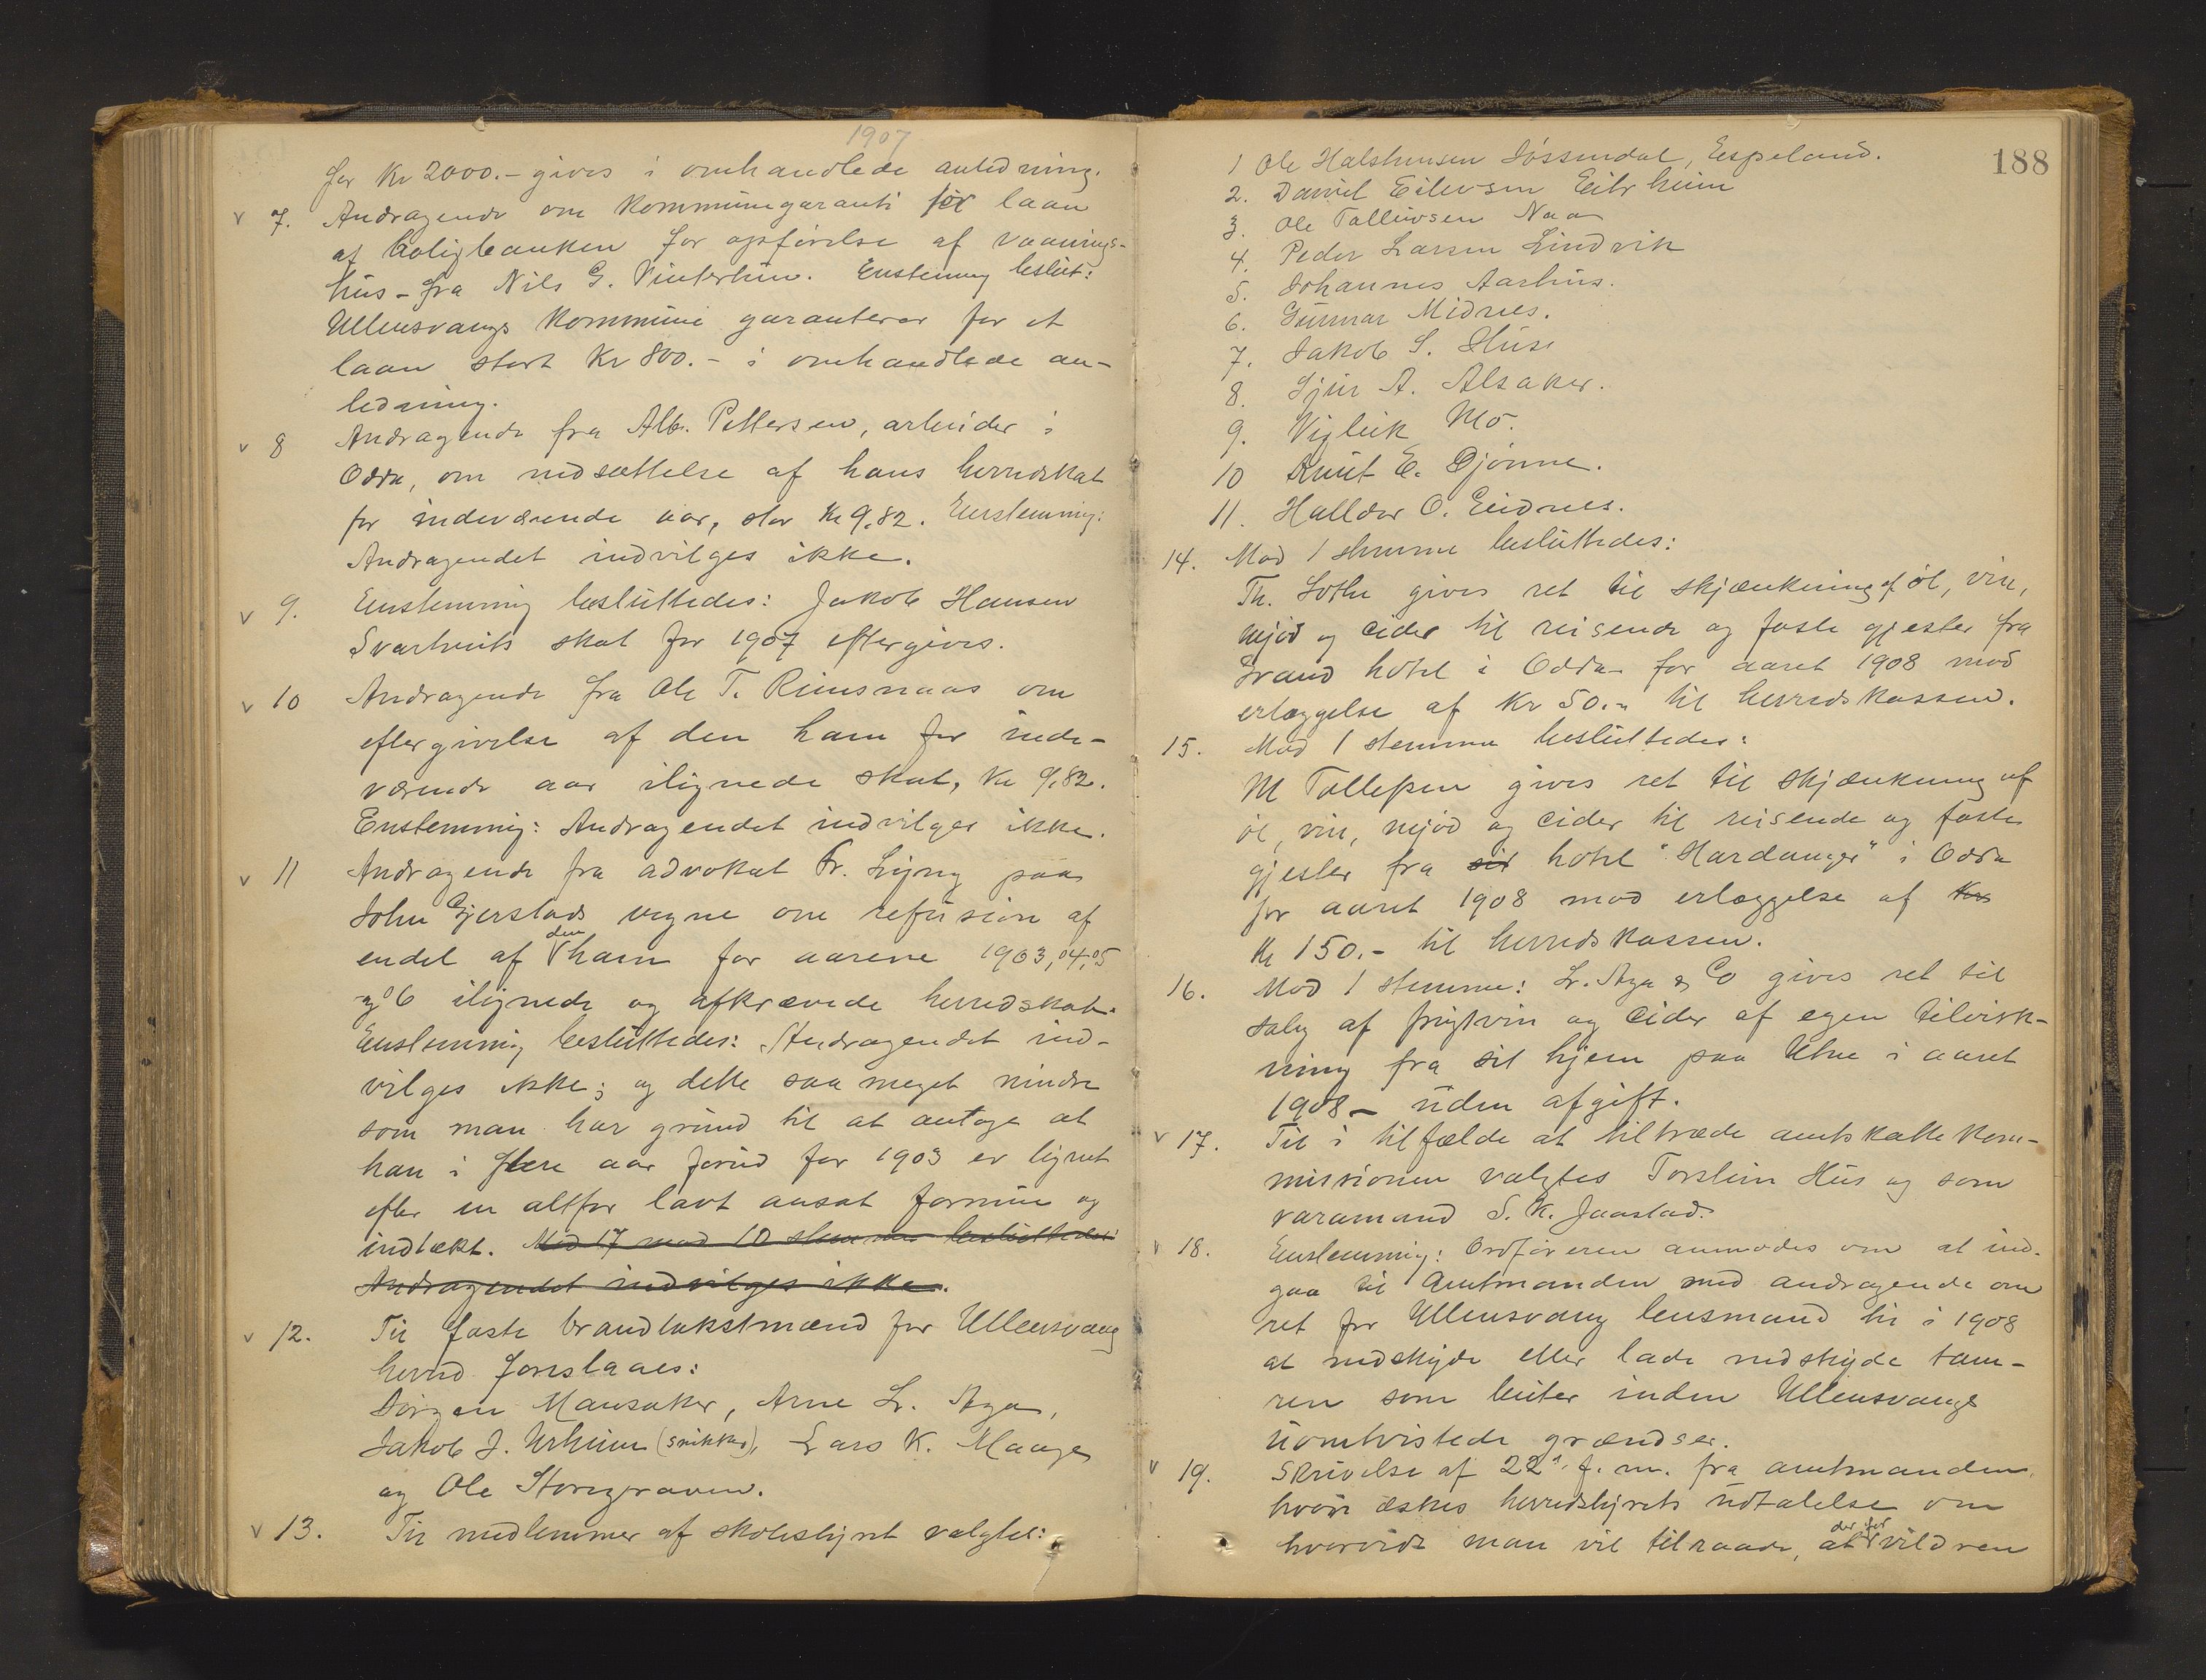 1907
for Kr 2000.- gives i omhandlede anledning.
v 7. Andragende om kommunegaranti for laan
af boligbanken for opførelse af vaanings-
hus - fra Nils G. Vinterhun. Enstemmig beslut:
Ullensvangs kommune garanterer for et
laan stort Kr 800.- i omhandlede an-
ledning.
v 8 Andragende fra Alb. Pettersen, arbeider i
Odda, om nedsættelse af hans herredskat
for indeværende aar, stor Kr 9,82. Enstemmig:
Andragendet indvilges ikke.
v 9. Enstemmig besluttedes: Jakob Hansen
Svartveits skat for 1907 eftergives.
v 10 Andragende fra Ole T. Reinsnaas om
eftergivelse af den ham for inde-
værende aar ilignede skat, Kr 9,82.
Enstemmig: Andragendet indvilges ikke.
v 11 Andragende fra advokat Fr. Lyng paa
John Gjerstads vegne om refusion af
endel af den ham for aarene 1903, 04, 05
og 06 ilignede og afkrævede herredskat.
Enstemmig besluttedes: Andragendet ind-
vilges ikke; og dette saa meget mindre
som man har grund til at antage at
han i flere aar forud for 1903 er lignet
efter en altfor lavt ansat formue og
indtækt. Med 17 mod 10 stemmer besluttedes:
Andragendet indvilges ikke.
v 12. Til faste brandtakstmænd for Ullensvang
herred foreslaaes:
Jørgen Mansaker, Arne L. Aga,
Jakob J. Urheim (snikker), Lars K. Maage
og Ole Storegraven.
v 13. Til medlemmer af skolestyret valgtes:
188
1 Ole Halstensen Jøssendal, Espeland.
2. Daniel Eilevsen Eitrheim
3. Ole Tollevsen Naa
4. Peder Larsen Lindvik
5. Johannes Aarhus.
6. Gunnar Midnes.
7. Jakob S. Huse
8. Sjur A. Alsaker.
9. Vigleik Mo.
10 Knut E. Djønne.
11. Halldor O. Eidnes.
14. Mod 1 stemme besluttedes:
Th. Lothe gives ret til skjænkning af øl, vin,
mjød og cider til reisende og faste gjester fra
Grand hotel i Odda for aaret 1908 mod
erlæggelse af Kr 50.- til herredskassen.
15. Mod 1 stemme besluttedes:
M Tollefsen gives ret til skjænkning af
øl, vin, mjød og cider til reisende og faste
gjester fra sit hotel "Hardanger" i Odda
for aaret 1908 mod erlæggelse af Kr
Kr 150.- til herredskassen.
16. Mod 1 stemme: L. Aga & Co gives ret til
salg af frugtvin og cider af egen tilvirk-
ning fra sit hjem paa Utne i aaret
1908 - uden afgift.
v 17. Til i tilfælde at tiltræde amtskattekom-
missionen valgtes Torstein Hus og som
varamand S. K. Jaastad.
v 18. Enstemmig: Ordføreren anmodes om at ind-
gaa til Amtmanden med andragende om
ret for Ullensvang lensmand til i 1908
at nedskyde eller lade nedskyde tam-
ren som beiter inden Ullensvangs
uomtvistede grændser.
v 19. Skrivelse af 22. f. m. fra amtmanden,
hvori æskes herredstyrets udtalelse om
hvorvidt man vil tilraade, at der for vildren